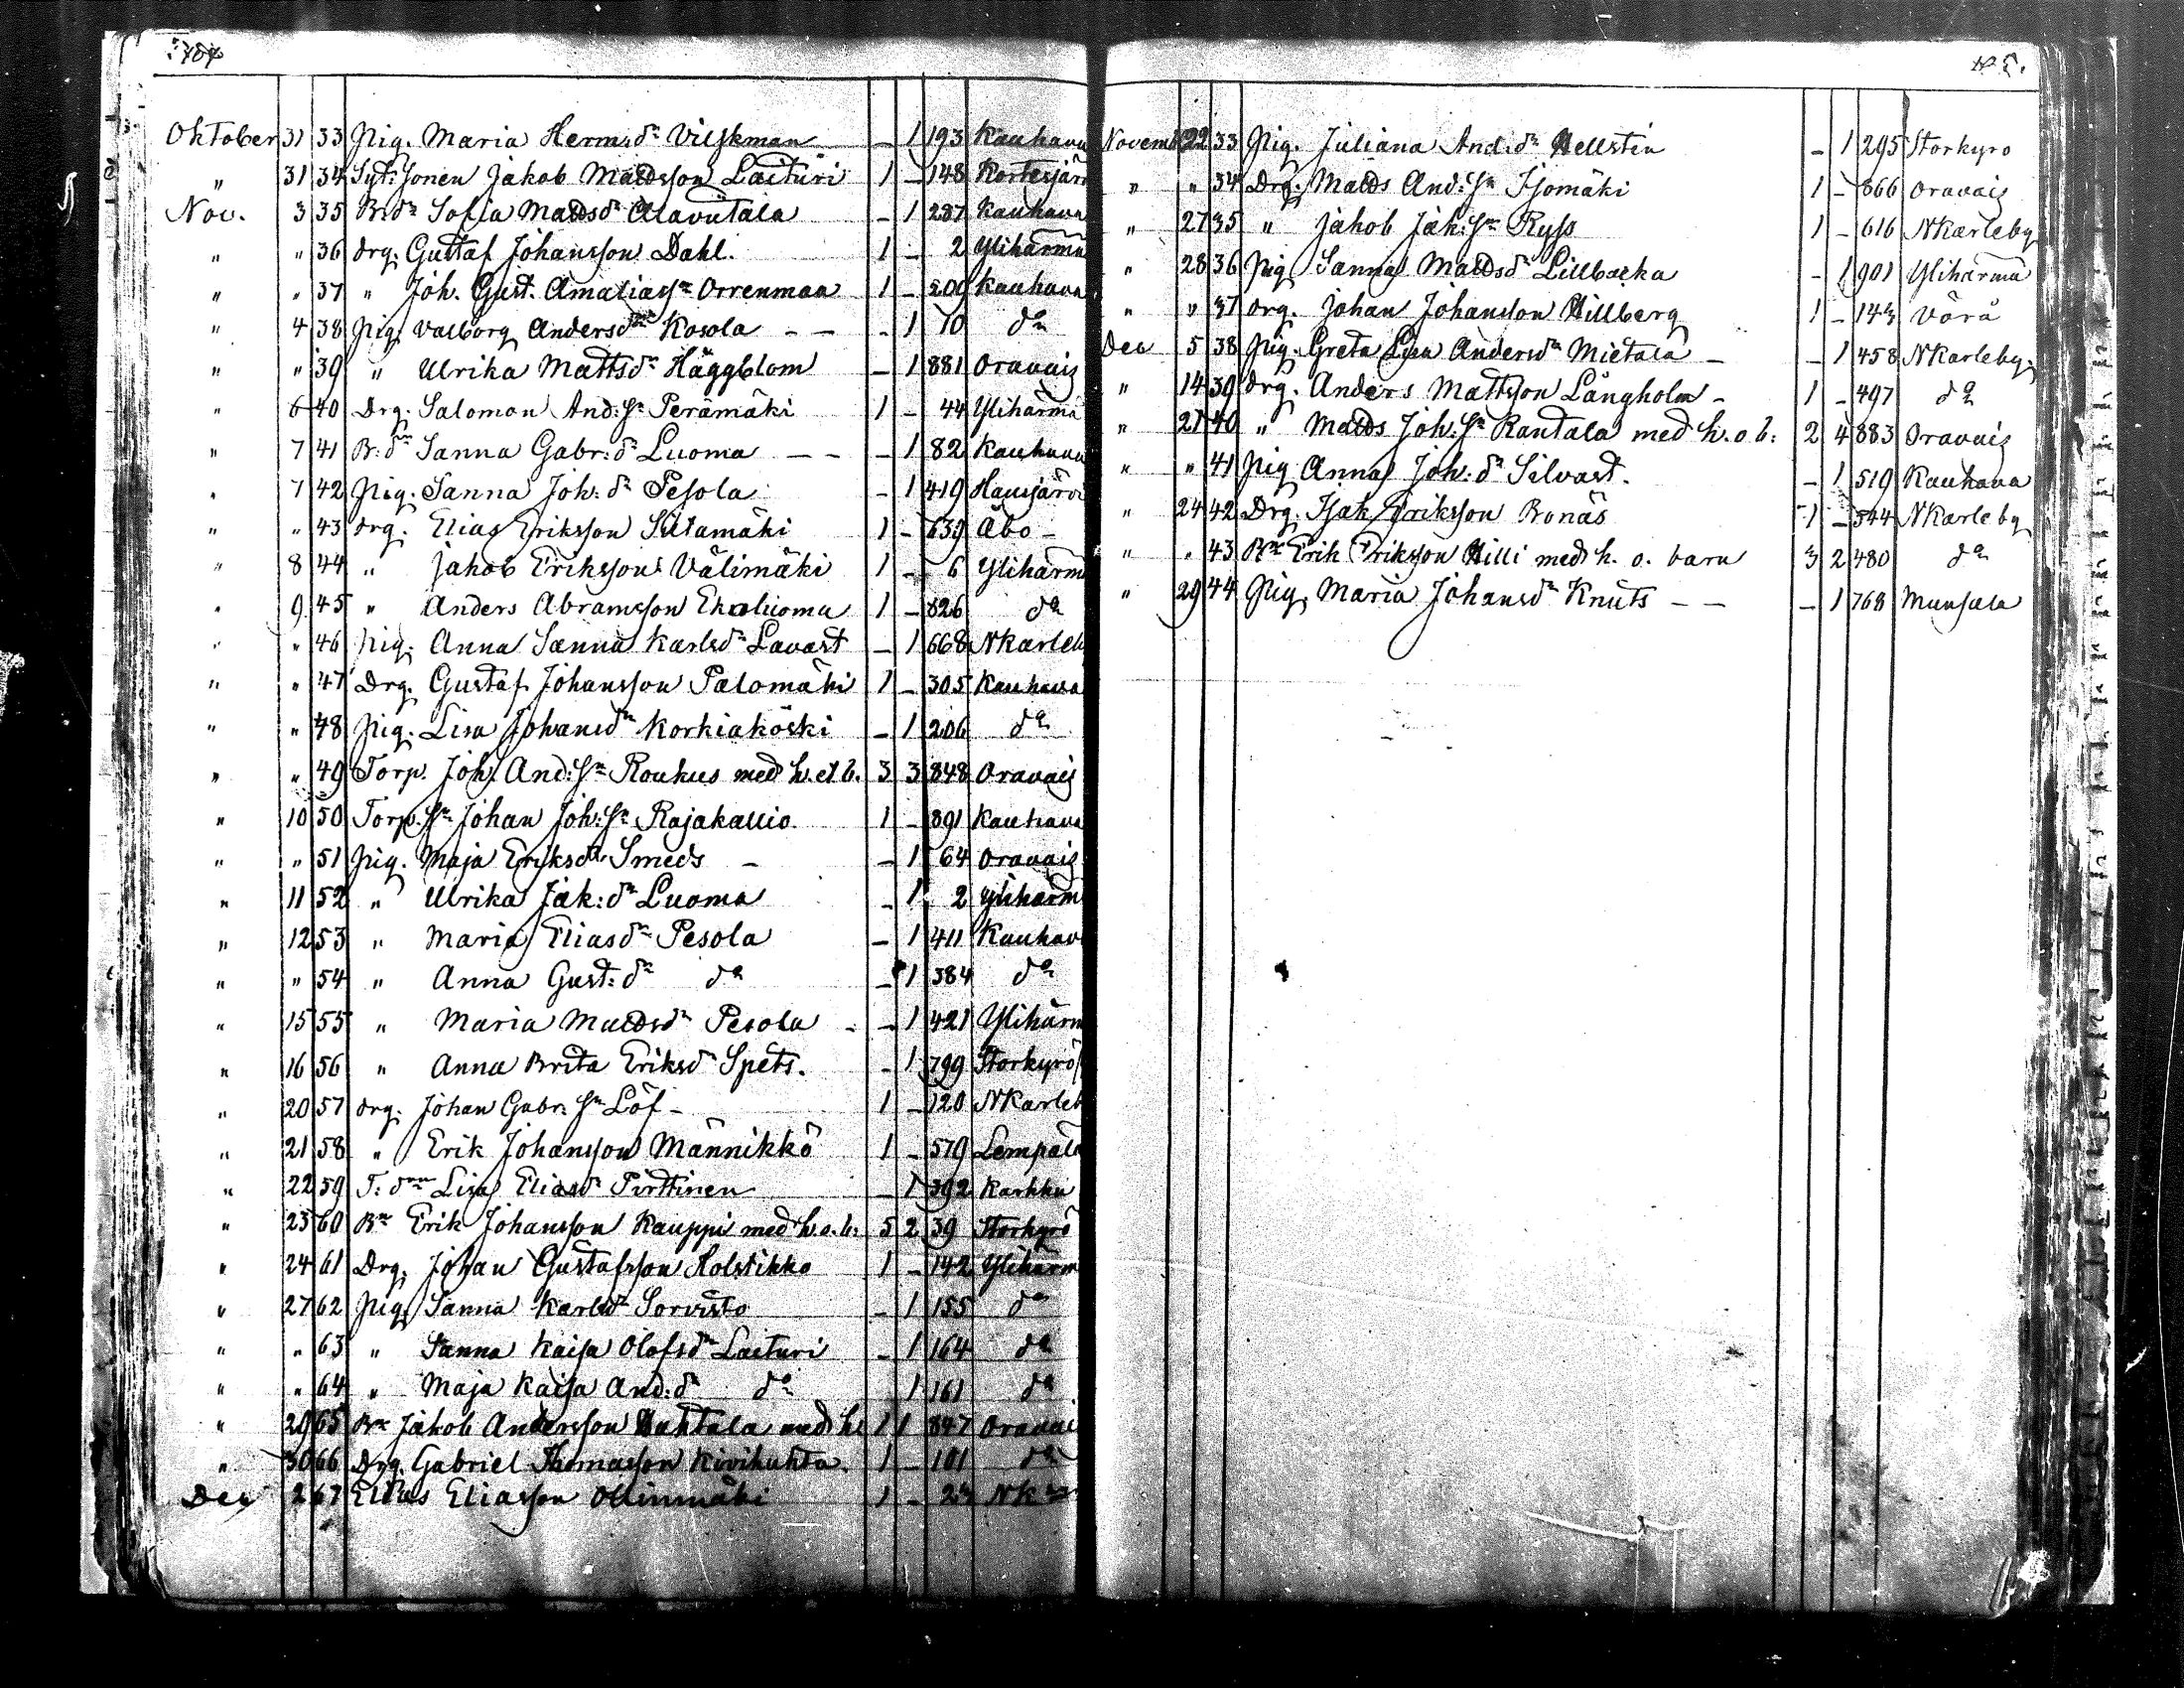 104
Oktober 31 33 Pig. Maria Herm:dr Vilskman – 1 193 Kauhava
" 31 34 Syt:sonen Jakob Mattsson Laituri 1 – 148 Kortesjärv
Nov. 3 35 B:dr Sofia Mattsdr Alaviitala – 1 287 Kauhava
" " 36 Drg. Gustaf Johansson Dahl. 1 – 2 Ylihärmä
" " 37 " Joh. Gust. Amaliasn Orrenmaa 1 – 200 Kauhava
" 4 38 Pig. Valborg Andersdr Kosola – – – 1 10 do
" " 39 " Ulrika Mattsdr Häggblom – 1 881 Oravais
" 6 40 Drg. Salomon And:sn Perämäki 1 – 44 Ylihärmä
" 7 41 B:dr Sanna Gabr:dr Luoma – – – 1 82 Kauhava
" 7 42 Pig. Sanna Joh:dr Pesola – 1 419 Hausjärvi
" " 43 Drg. Elias Eriksson Sillamäki 1 – 639 Åbo –
" 8 44 " Jakob Eriksson Välimäki 1 – 6 Ylihärm
" 9 45 " Anders Abramsson Ekoluoma 1 – 826 do
" " 46 Pig. Anna Sanna Karlsdr Lavast – 1 668 NKarleb
" " 47 Drg. Gustaf Johansson Palomäki 1 – 305 Kauhava
" " 48 Pig. Lisa Johansdr Korkiakoski – 1 206 do
" " 49 Torp. Joh. And:sn Rouhus med h. et b. 3 3 848 Oravais
" 10 50 Torp.sn Johan Joh:sn Rajakallio. 1 – 891 Kauhava
" " 51 Pig. Maja Eriksdr Smeds – – 1 64 Oravais
" 11 52 " Ulrika Jak:dr Luoma – 1 2 Ylihärm
" 12 53 " Maria Eliasdr Pesola – 1 411 Kauhav
" " 54 " Anna Gust:dr do – 1 384 do
" 15 55 " Maria Mattsdr Pesola – – 1 421 Ylihärm
" 16 56 " Anna Brita Eriksdr Spets. – 1 799 Storkyrö
" 20 57 Drg. Johan Gabr:sn Löf – 1 – 120 NKarleb
" 21 58 " Erik Johansson Männikkö 1 – 579 Lempälä
" 22 59 T:dr Lisa Eliasdr Pirttinen – 1 392 Karkku
" 23 60 Bn Erik Johansson Kauppi med h. o. b: 5 2 39 Storkyrö
" 24 61 Drg. Johan Gustafsson Kolstikko 1 – 142 Ylihärm
" 27 62 Pig. Sanna Karlsdr Sorvisto – 1 155 do
" " 63 " Sanna Kaisa Olofsdr Laituri – 1 164 do
" " 64 " Maja Kaisa And:dr do 1 161 do
" 29 65 Bn Jakob Andersson med h 1 1 847 Oravai
" 30 66 Drg. Gabriel Thomasson Kivihuhta. 1 – 101 do
Dec 2 67 Elias Eliasson Ollinmäki 1 – NK
105.
Novemb 22 33 Pig. Juliana And:dr Hellstén – 1 295 Storkyro
" " 34 Drg. Matts And:sn Isomäki 1 – 866 Oravais
" 27 35 " Jakob Jak:sn Ryss 1 – 616 NKarleby
" 28 36 Pig. Sanna Mattsdr Lillbacka – 1 901 Ylihärmä
" " 37 Drg. Johan Johansson Hillberg 1 – 143 Vörå
Dec 5 38 Pig. Greta Lisa Andersdr Mietala – – 1 458 NKarleby.
" 14 39 Drg. Anders Mattsson Långholm – 1 – 497 do
" 21 40 " Matts Joh:sn Rantala med h. o. b: 2 4 883 Oravais
" " 41 Pig Anna Joh:dr Silvast. – 1 519 Kauhava
" 24 42 Drg. Isak Eriksson Bonäs 1 – 544 NKarleby
" " 43 Bn Erik Eriksson Hilli med h. o. barn 3 2 480 do
" 29 44 Pig. Maria Johansdr Knuts – – – 1 768 Munsala